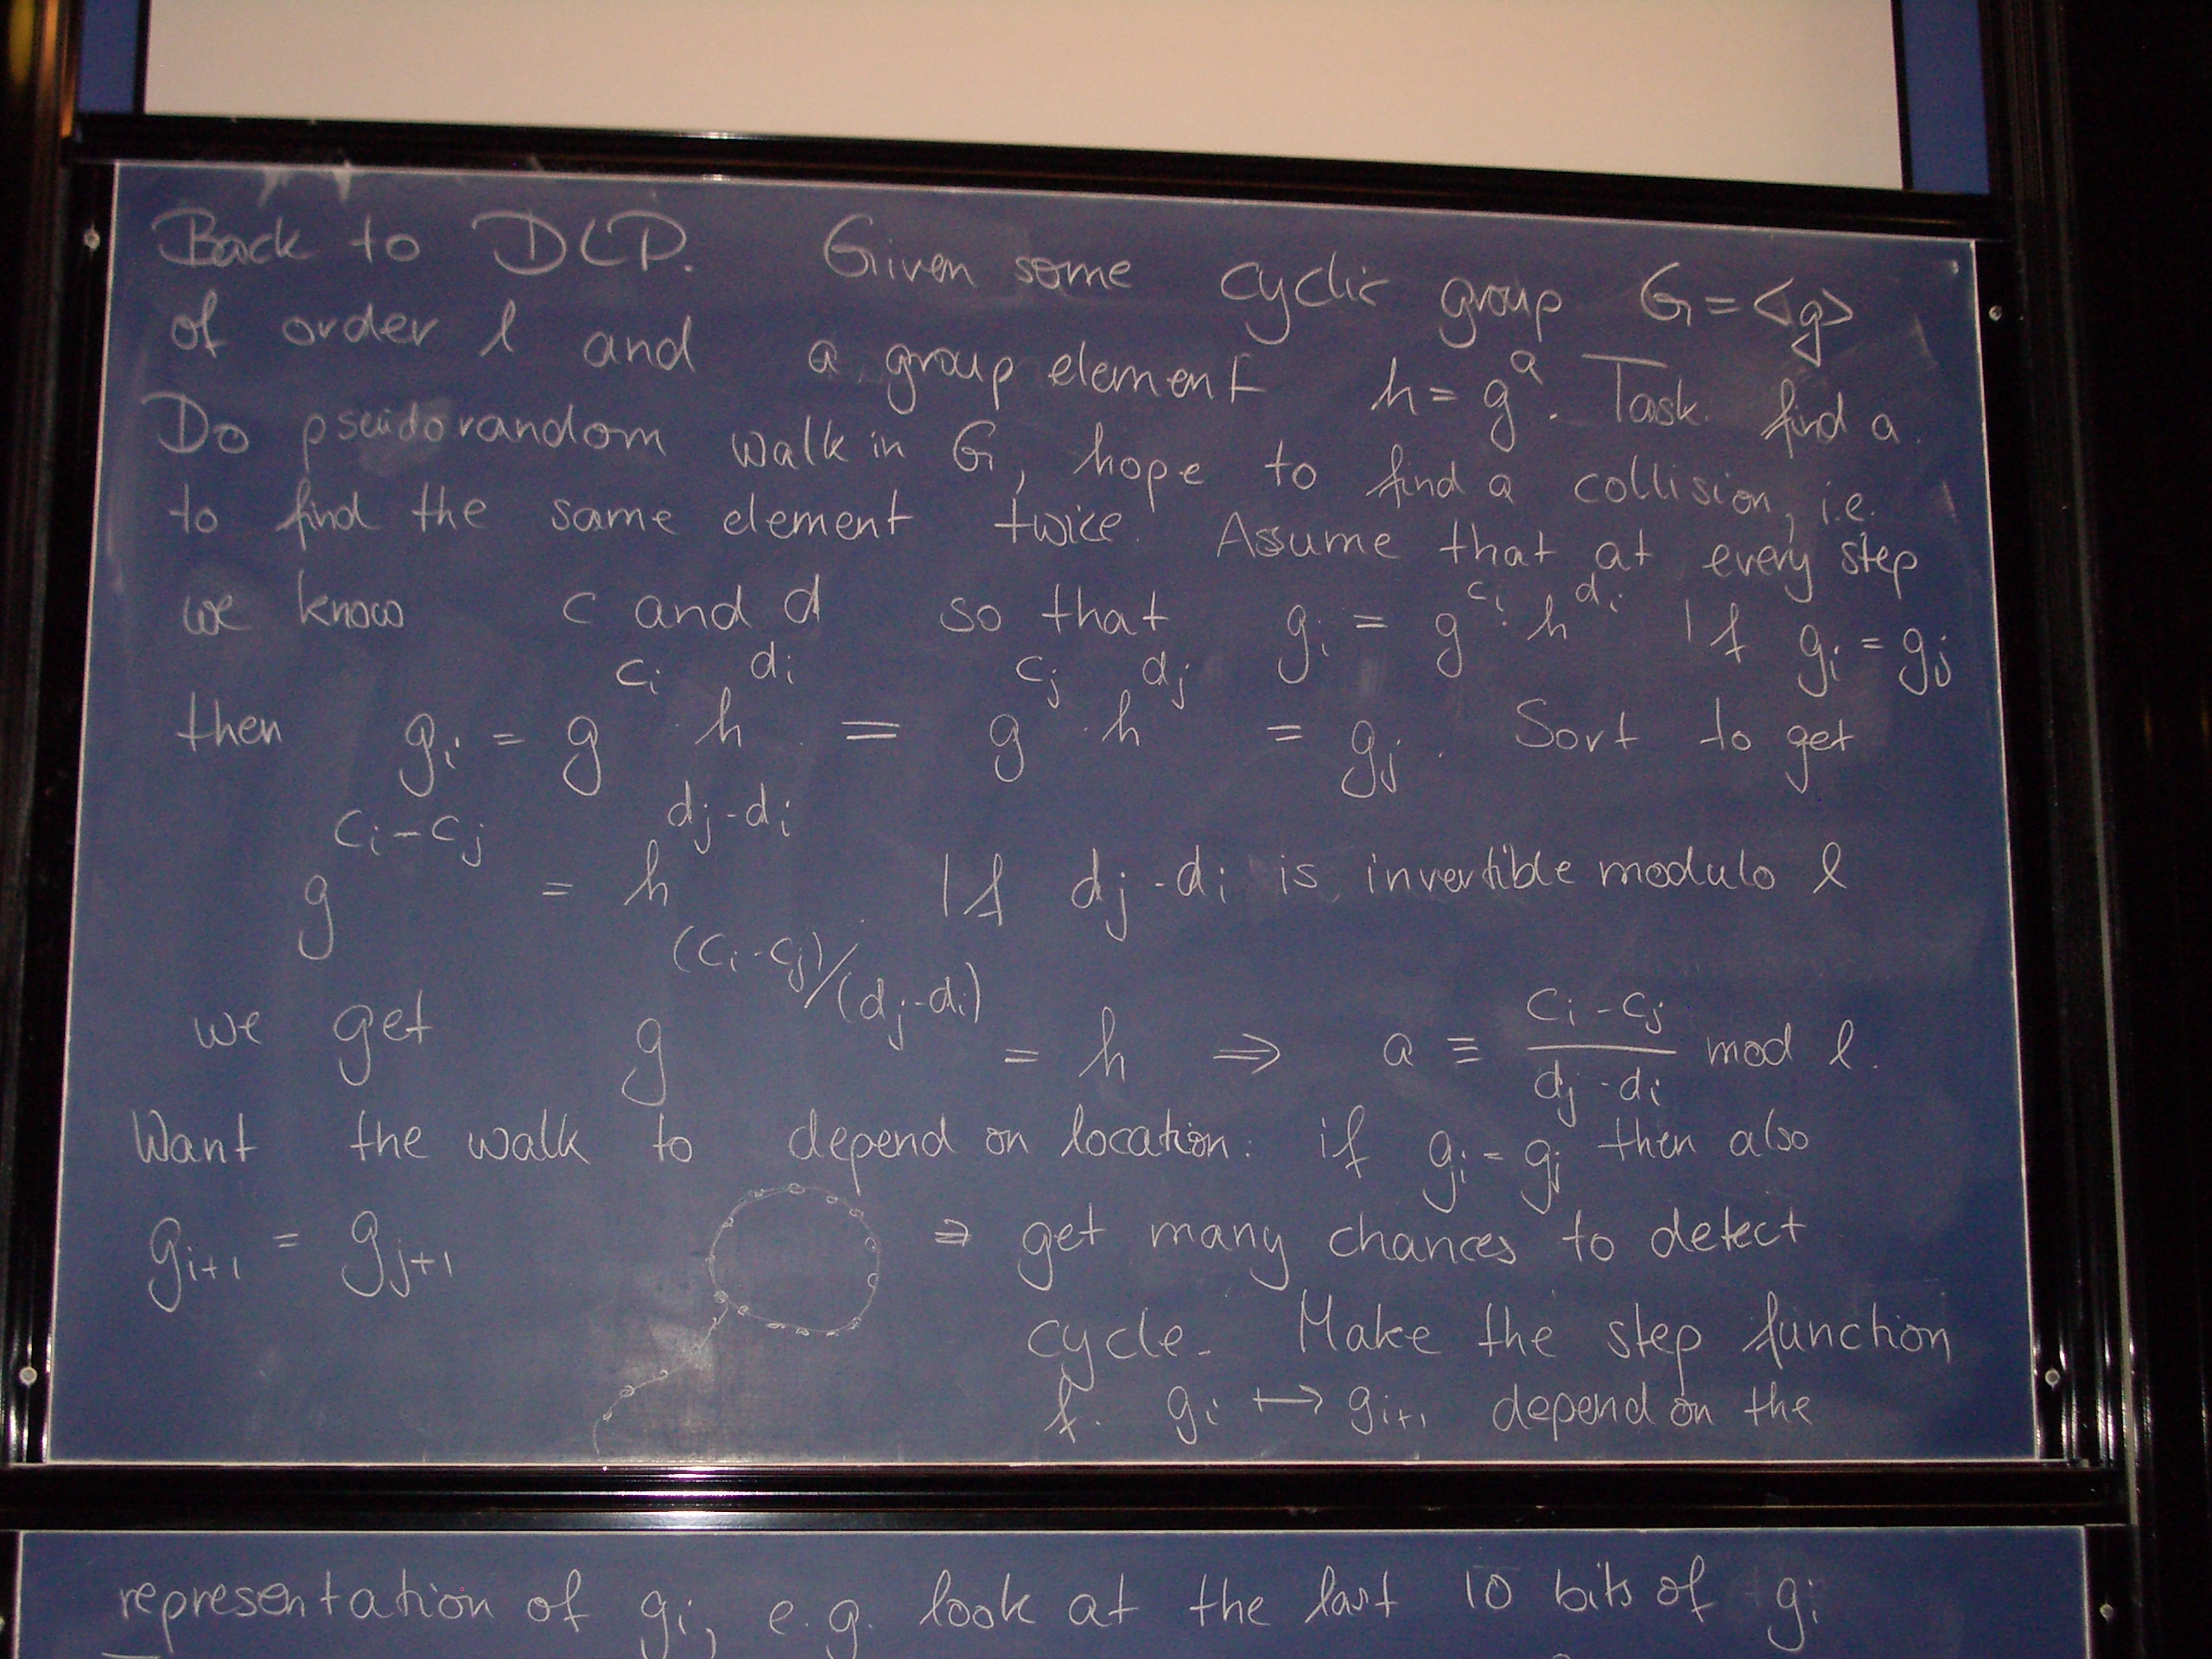 Back to DLP. Given some cyclic group G = <g>
of order l and a group element h = g^a. Task. find a.
Do pseudorandom walk in G, hope to find a collision, i.e.
to find the same element twice. Assume that at every step
we know c and d so that g_i = g^{c_i} · h^{d_i}. If g_i = g_j
then g_i = g^{c_i} · h^{d_i} = g^{c_j} · h^{d_j} = g_j. Sort to get
g^{c_i - c_j} = h^{d_j - d_i}. If d_j - d_i is invertible modulo l
we get g^{(c_i - c_j)/(d_j - d_i)} = h ⇒ a ≡ \frac{c_i - c_j}{d_j - d_i} mod l.
Want the walk to depend on location: if g_i = g_j then also
g_{i+1} = g_{j+1} ⇒ get many chances to detect
cycle. Make the step function
f: g_i ↦ g_{i+1} depend on the
representation of g_i, e.g. look at the last 10 bits of g_i